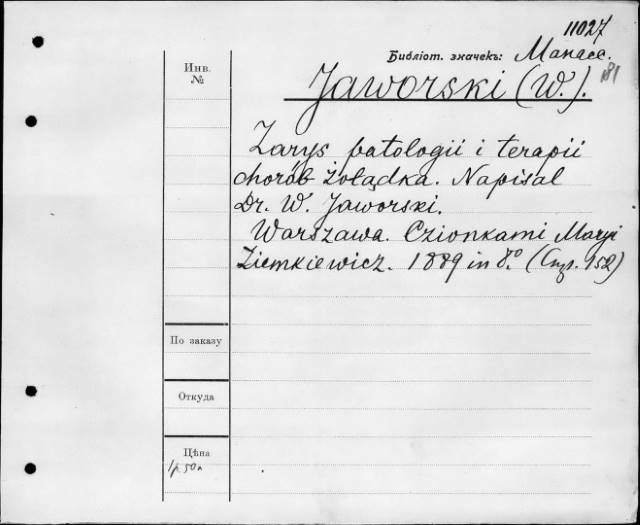 11027
Библіот. значекъ: Манасс.
181
Инв.
№
Jaworski (W.).
Zarys patologii i terapii
chorób żołądka. Napisał
Dr. W. Jaworski.
Warszawa. Czionkami Maryi
Ziemkiewicz. 1889 in 8.° (Стр. 152)
По заказу
Откуда
Цѣна
1р 50к